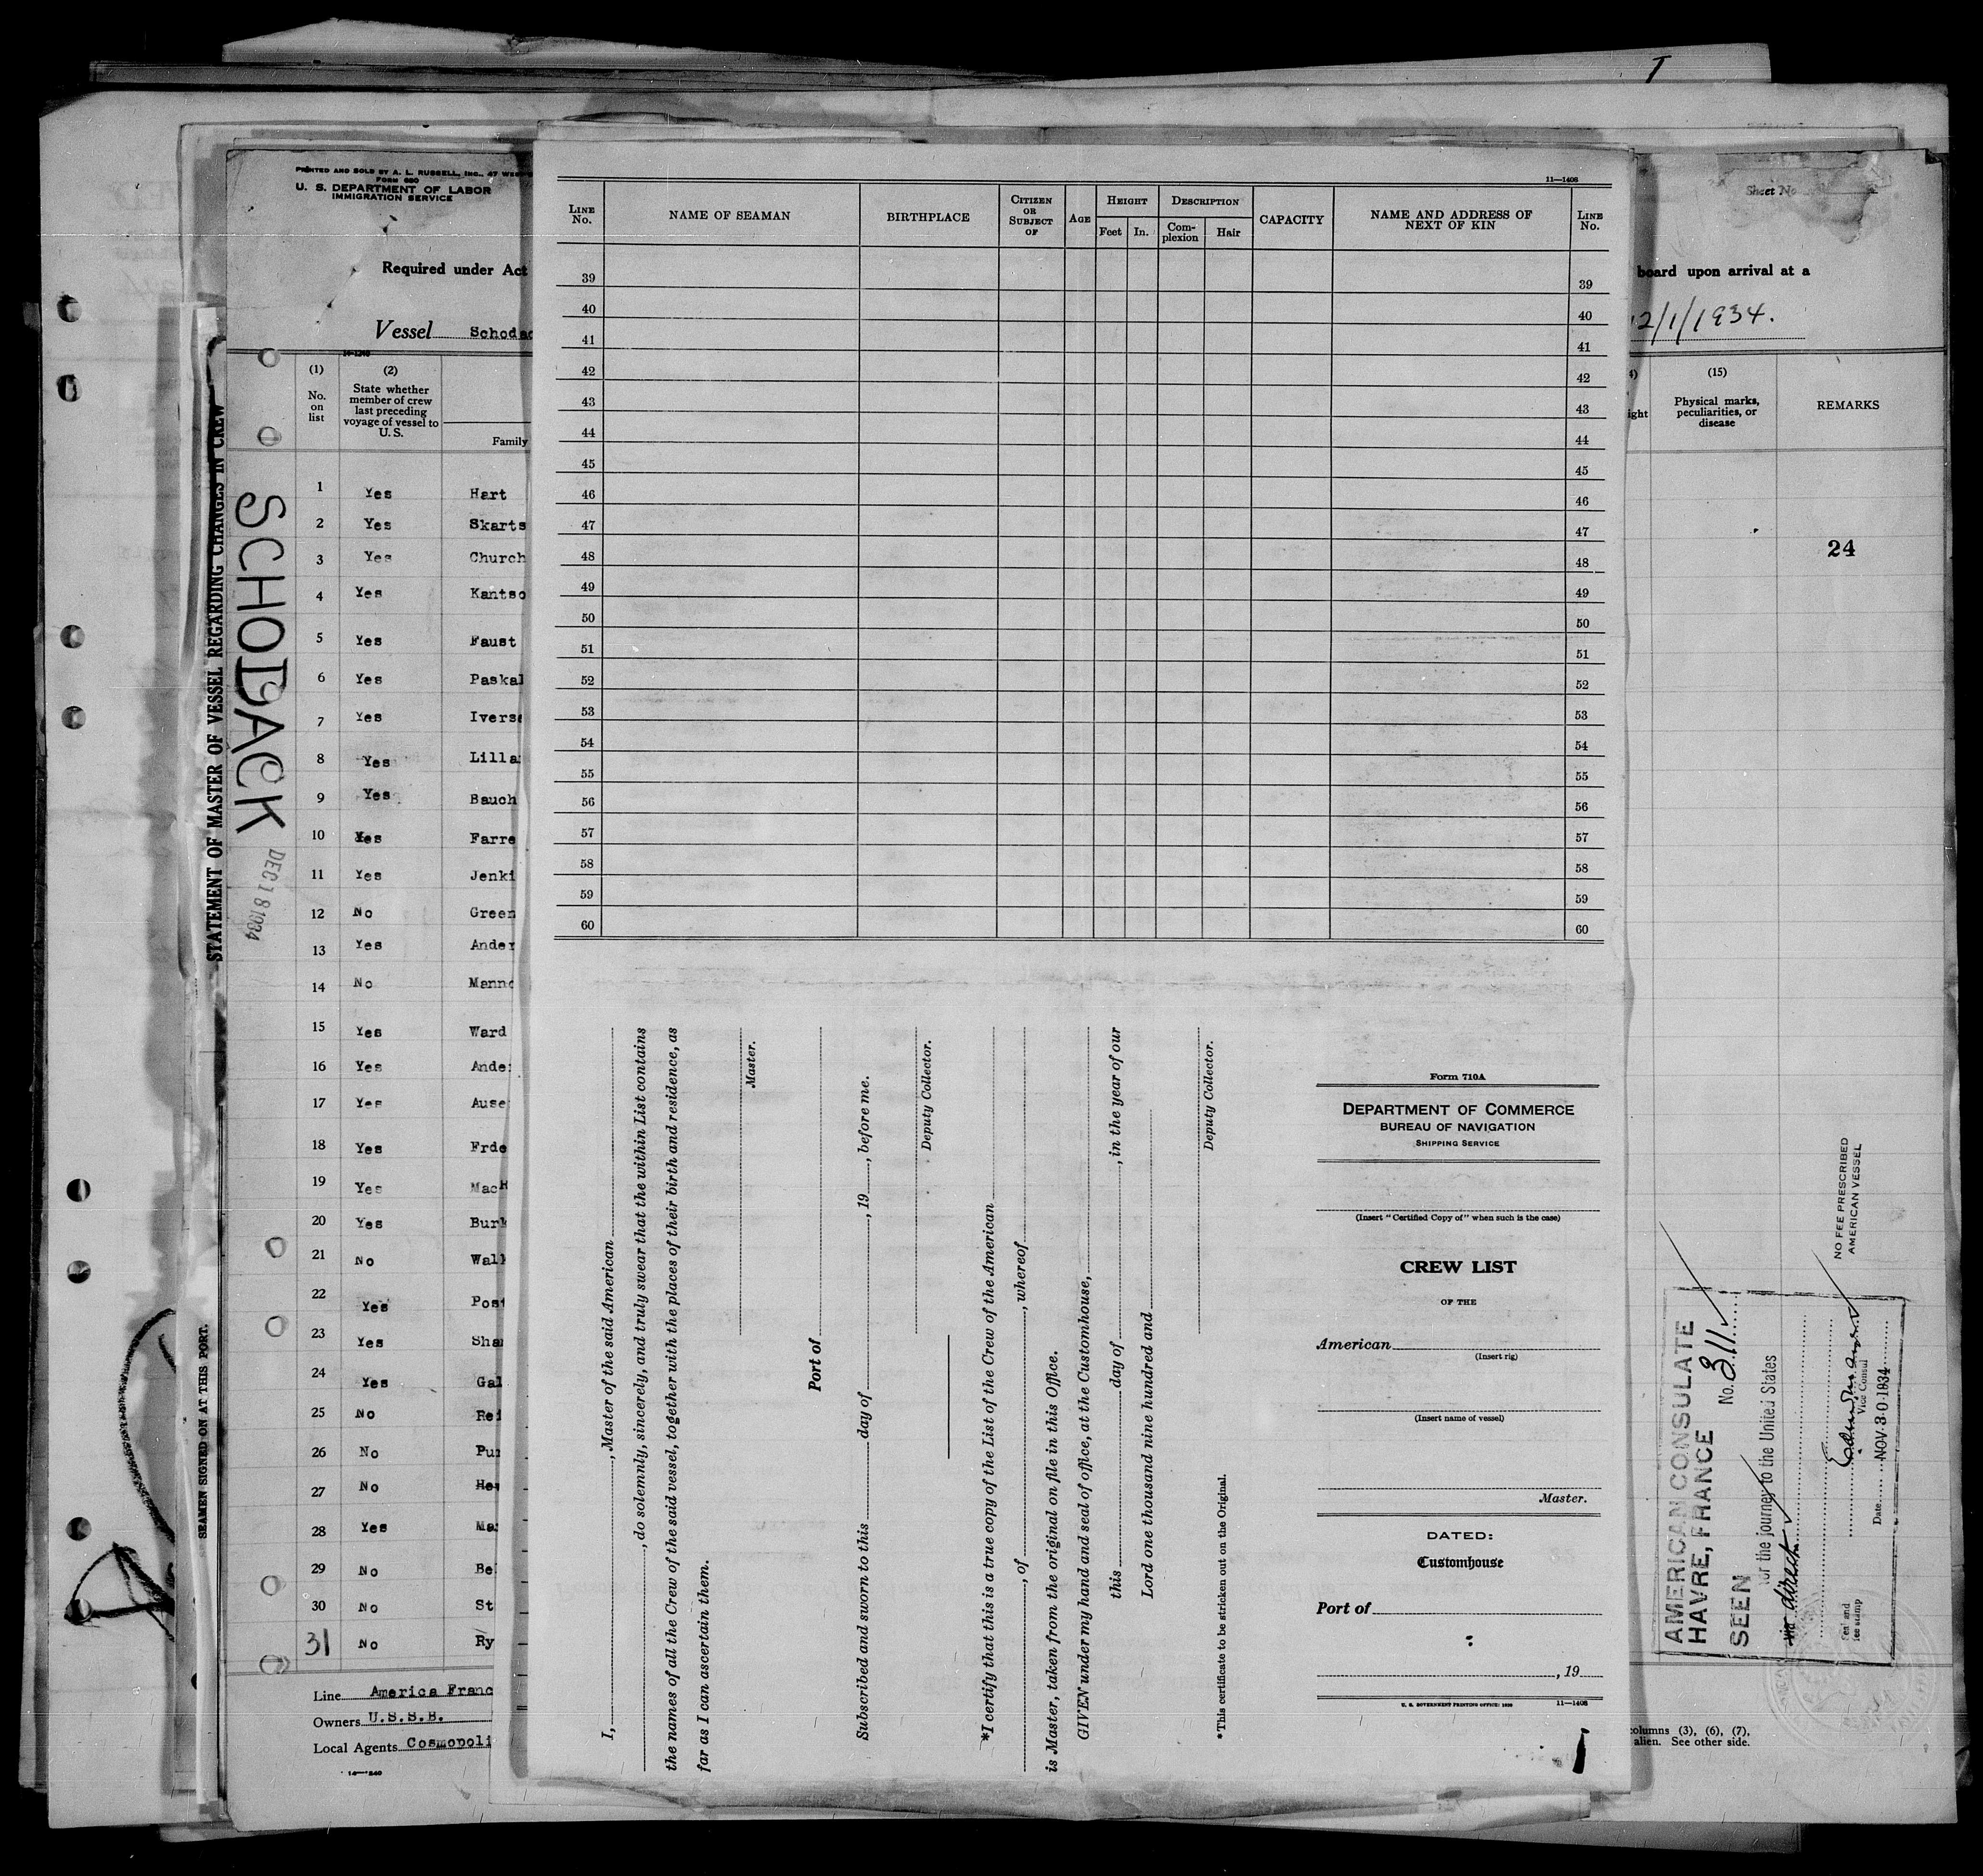 T
PRINTED AND SOLD BY A. L. RUSSELL, INC., 47 WEST
FORM 680
U. S. DEPARTMENT OF LABOR
IMMIGRATION SERVICE
Required under Act
Vessel Schodac
14-1240
(1) (2)
No. on list
State whether member of crew last preceding voyage of vessel to U. S.
Family
1 Yes Hart
2 Yes Skarts
3 Yes Church
4 Yes Kantso
5 Yes Faust
6 Yes Paskal
7 Yes Iverse
8 Yes Lilla
9 Yes Bauch
10 Yes Farre
11 Yes Jenki
12 No Green
13 Yes Ander
14 No Mann
15 Yes Ward
16 Yes Ande
17 Yes Ause
18 Yes Frde
19 Yes Mac
20 Yes Bur
21 No Wal
22 Yes Pos
23 Yes Sha
24 Yes Gal
25 No Rei
26 No Pu
27 No
28 Yes Ma
29 No Be
30 No St
31 No Ry
Line America Franc
Owners U.S.S.B.
Local Agents Cosmopoli
STATEMENT OF MASTER OF VESSEL REGARDING CHANGES IN CREW
SEAMEN SIGNED ON AT THIS PORT.
SCHODACK
DEC 18 1934
11—1408
LINE No.
NAME OF SEAMAN
BIRTHPLACE
CITIZEN OR SUBJECT OF
AGE
HEIGHT
Feet In.
DESCRIPTION
Complexion Hair
CAPACITY
NAME AND ADDRESS OF NEXT OF KIN
LINE No.
39 39
40 40
41 41
42 42
43 43
44 44
45 45
46 46
47 47
48 48
49 49
50 50
51 51
52 52
53 53
54 54
55 55
56 56
57 57
58 58
59 59
60 60
I, , Master of the said American
, do solemnly, sincerely, and truly swear that the within List contains
the names of all the Crew of the said vessel, together with the places of their birth and residence, as
far as I can ascertain them.
Master.
Port of
Subscribed and sworn to this day of , 19 , before me.
Deputy Collector.
*I certify that this is a true copy of the List of the Crew of the American
, of , whereof
is Master, taken from the original on file in this Office.
GIVEN under my hand and seal of office, at the Customhouse,
this day of , in the year of our
Lord one thousand nine hundred and
Deputy Collector.
*This certificate to be stricken out on the Original.
Form 710A
DEPARTMENT OF COMMERCE
BUREAU OF NAVIGATION
SHIPPING SERVICE
(Insert "Certified Copy of" when such is the case)
CREW LIST
OF THE
American
(Insert rig)
(Insert name of vessel)
Master.
DATED:
Customhouse
Port of
, 19
U. S. GOVERNMENT PRINTING OFFICE: 11—1408
Sheet No
board upon arrival at a
12/1/1934.
(15)
ight
Physical marks, peculiarities, or disease
REMARKS
24
NO FEE PRESCRIBED
AMERICAN VESSEL
AMERICAN CONSULATE
HAVRE, FRANCE No. 311
SEEN
for the journey to the United States
via direct
Vice Consul
Date NOV 30 1934
Seal and
fee stamp
columns (3), (6), (7),
alien. See other side.